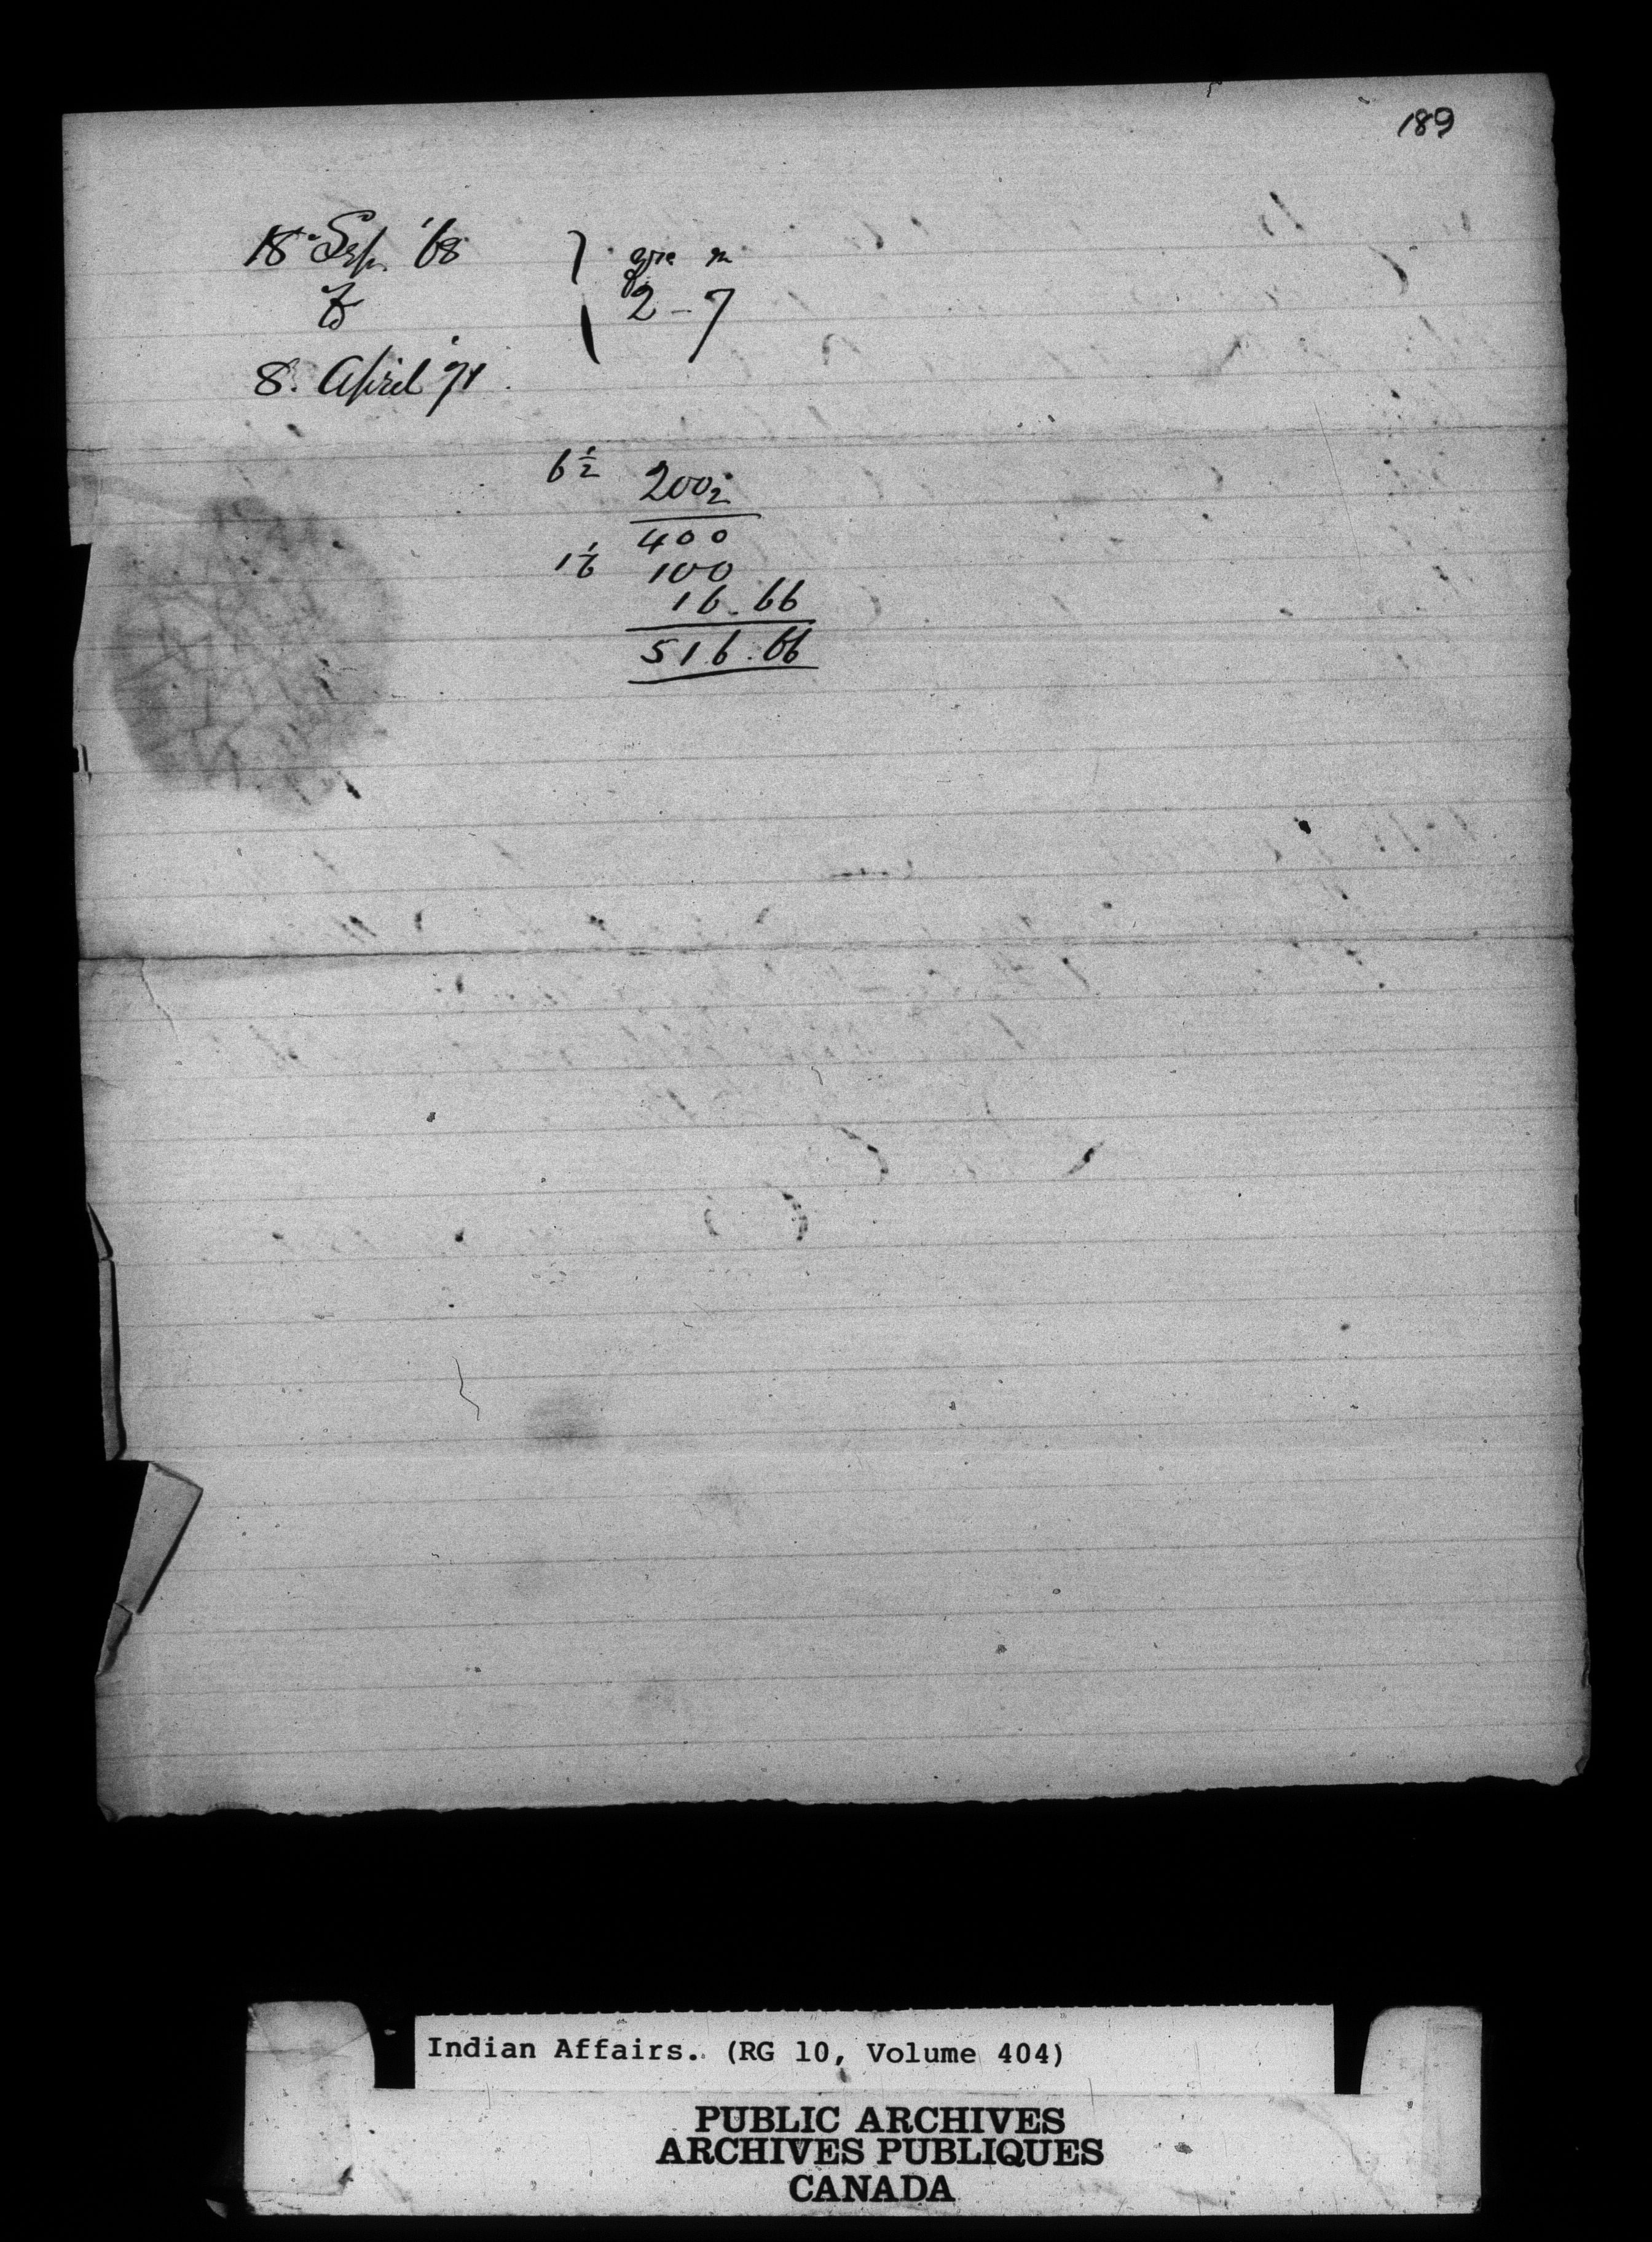 189
18 Sep. '68 } yrs m
to 2 - 7
8. April '71
6 1/2 200 2
400
1/6 100
16.66
516.66
Indian Affairs. (RG 10, Volume 404)
PUBLIC ARCHIVES
ARCHIVES PUBLIQUES
CANADA